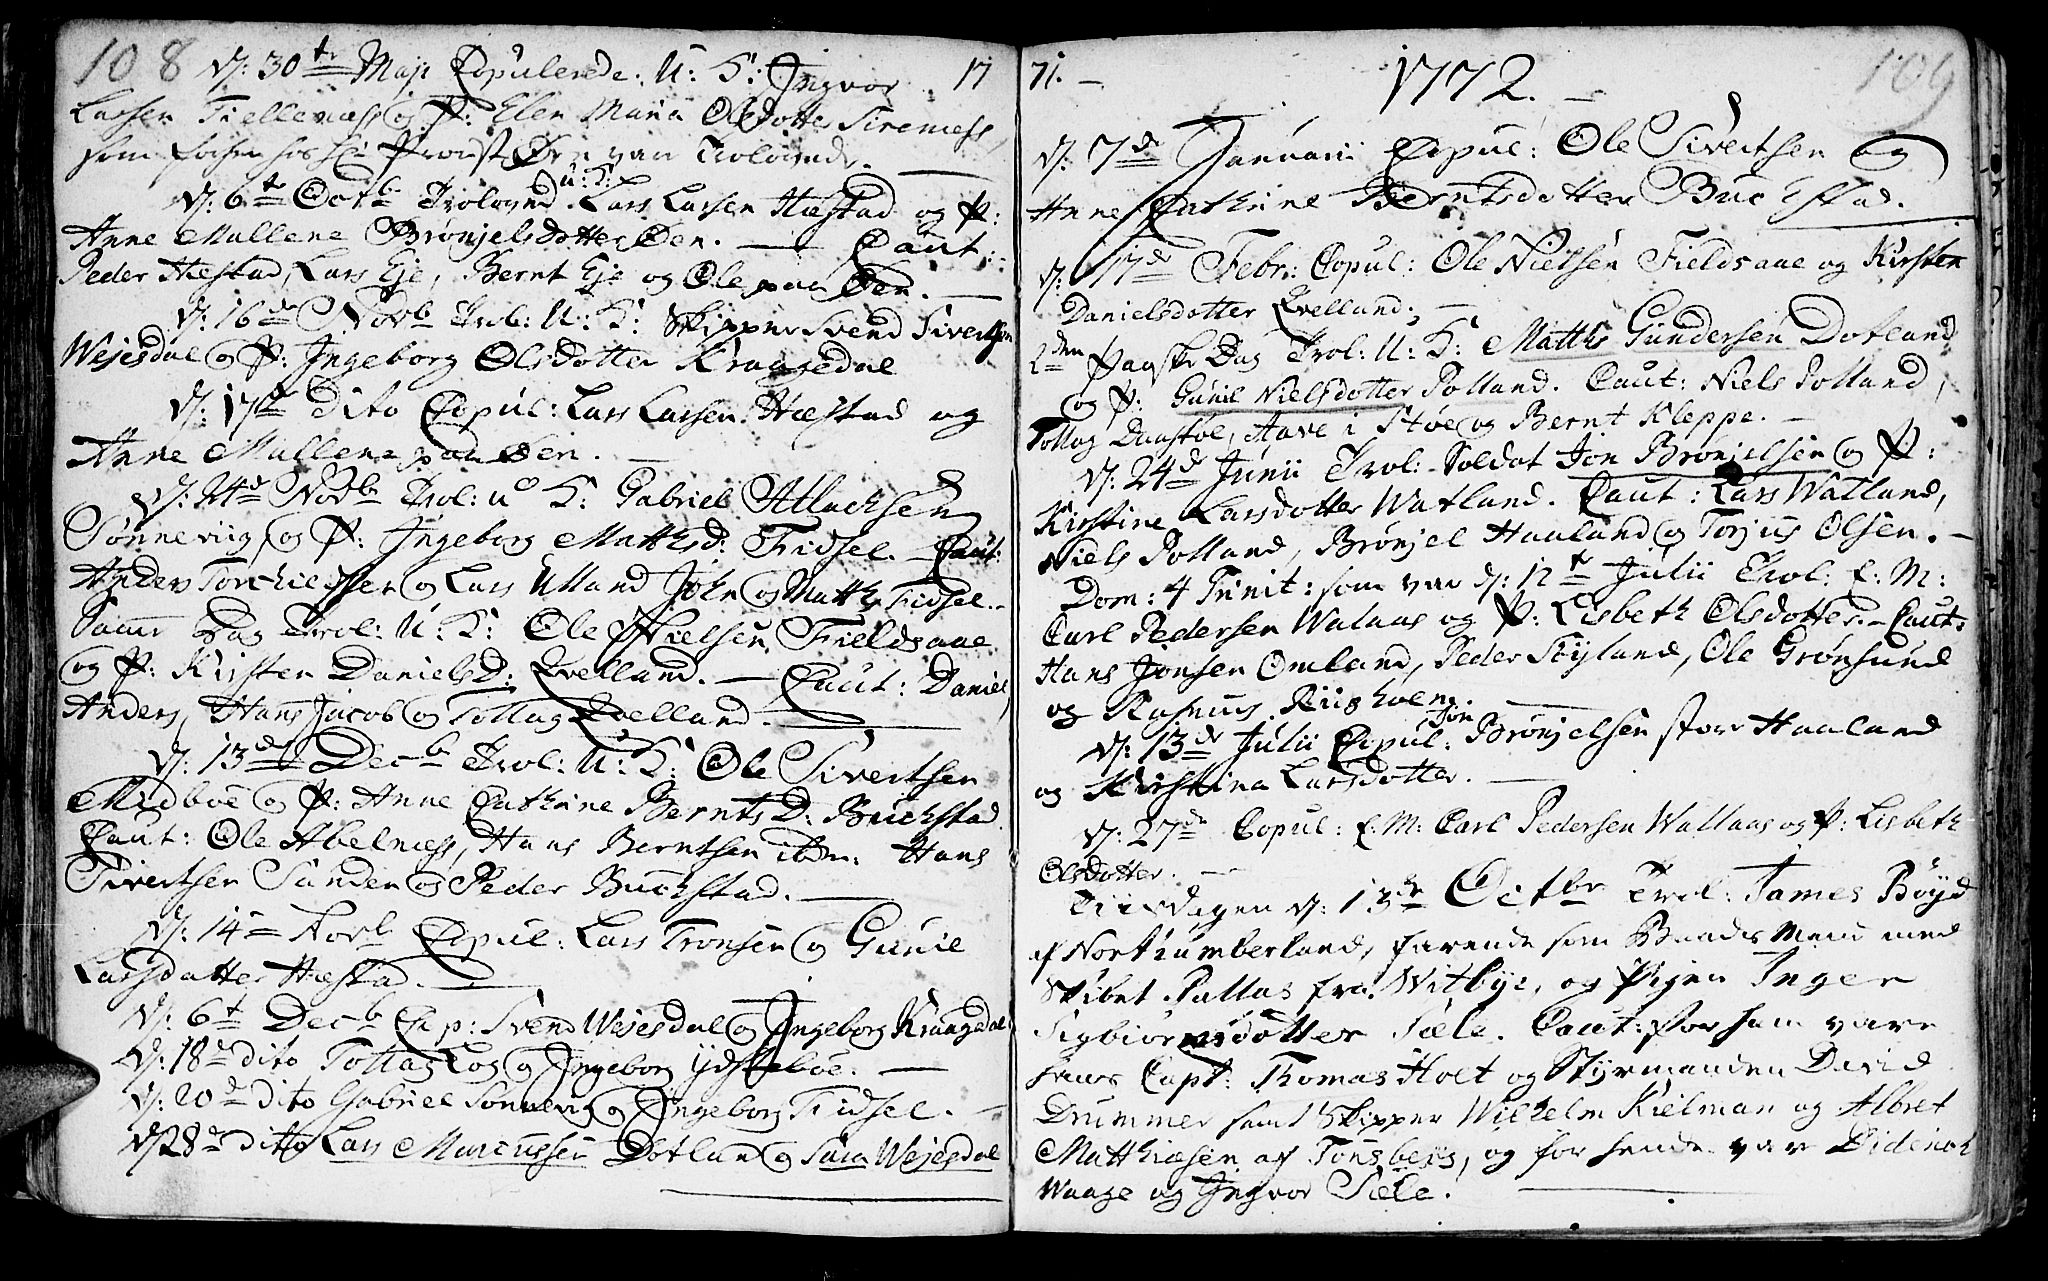 108 d: 30te Maji Copulerede: U: K: Ingvor 17
Larsen Fielleness og P: Elen Maria Olsdotter Sireness
som forhen hos Hr Provist var Trolovede.
d: 6te Octb Trolovud U: K: Lars Larsen Hæstad og P:
Anne Mallene Brønjelsdotter Øen. — Caut:
Peder Hæstad, Lars Eje, Bernt Eje og Ole paa Øen. —
d: 16de Novb Trol: U: K: Skipper Svend Sivertsen
Wejesdal og P: Ingeborg Olsdotter Kraagedal
d: 17de dito Copul: Lars Larsen Hæstad og
Anne Mallene paa Øen. —
d: 24de Novb Trol: U: K: Gabriel Atlachsen
Sønneviig og P: Ingeborg Matthsd: Fidsel. — Caut:
Anders Torkieldsen og Lars Ulland John og Matthis Fidsel. —
Samme Dag Trol: U: K: Ole Nielsen Fieldsaae
og P: Kirsten DanielsD: Qvelland. — Caut: Daniel,
Anders, Hans Jacob og Tollag Qvelland. —
d: 13de Decb Trol: U: K: Ole Sivertsen
Midboe og P: Anne Cathrine BerntsD: Buckstad.
Caut: Ole Abelness, Hans Berntsen ibm: Hans
Sivertsen Sanden og Peder Buckstad. —
d: 14 Novb Copul: Lars Tronsen og Guniil
Larsdatter Hæstad. —
d: 6t Decb Cop: Svend Wejesdal og Ingeborg Kraagedal
d: 18de dito Tollag Log og Ingeborg Ydstebøe. —
d: 20de dito Gabriel Sønnevig og Ingeborg Fidsel. —
d: 28de dito Lars Marcussen Dotland og Sara Wejesdal
71. — 1772. — 109
d: 7de Januarii Copul: Ole Sivertsen og
Anne Cathrine Berntsdotter Buckstad.
d: 17de Febr: Copul: Ole Nielsen Fieldsaae og Kirsten
Danielsdotter Qvelland. —
2den Paaske Dag Trol: U: K: Matthis Gundersen Dotland
og P: Guniil Nielsdotter Polland. Caut: Niels Polland,
Tollag Daastøl, Aave i Støe og Bernt Kleppe. —
d: 24de Junii Trol: Soldat Jon Brønjelsen og P:
Kirstine Larsdotter Watland. Caut: Lars Watland,
Niels Polland, Brønjel Haaland og Torjus Olsen. —
Dom: 4 Trinit: som var d: 12te Julii Trol: E: M:
Carl Pedersen Walaas og P: Lisbeth Olsdotter. — Caut:
Hans Jonsen Omland, Peder Røyland, Ole Grønsund
og Rasmus Riisholen. —
d: 13de Julii Copul: Jon Brønjelsen store Haaland
og Kirstina Larsdotter. —
d: 27de Copul: E: M: Carl Pedersen Wallaas og P: Lisbeth
Olsdotter. —
Tiisdagen d: 13de Octbr Trol: James Böyd
af Northumberland, farende som Baads Mand med
Skibet Pallas fra Witbye, og Pigen Inger
Sigbiørnsdotter Sæle. Caut: for ham vare
hans Capt: Thomas Holt og Styrmanden David
Drummer samt Skipper Wilhelm Kielman og Albret
Matthiæsen af Tønsberg, og for hende var Diderich
Waage og Ingvor Sæle. —